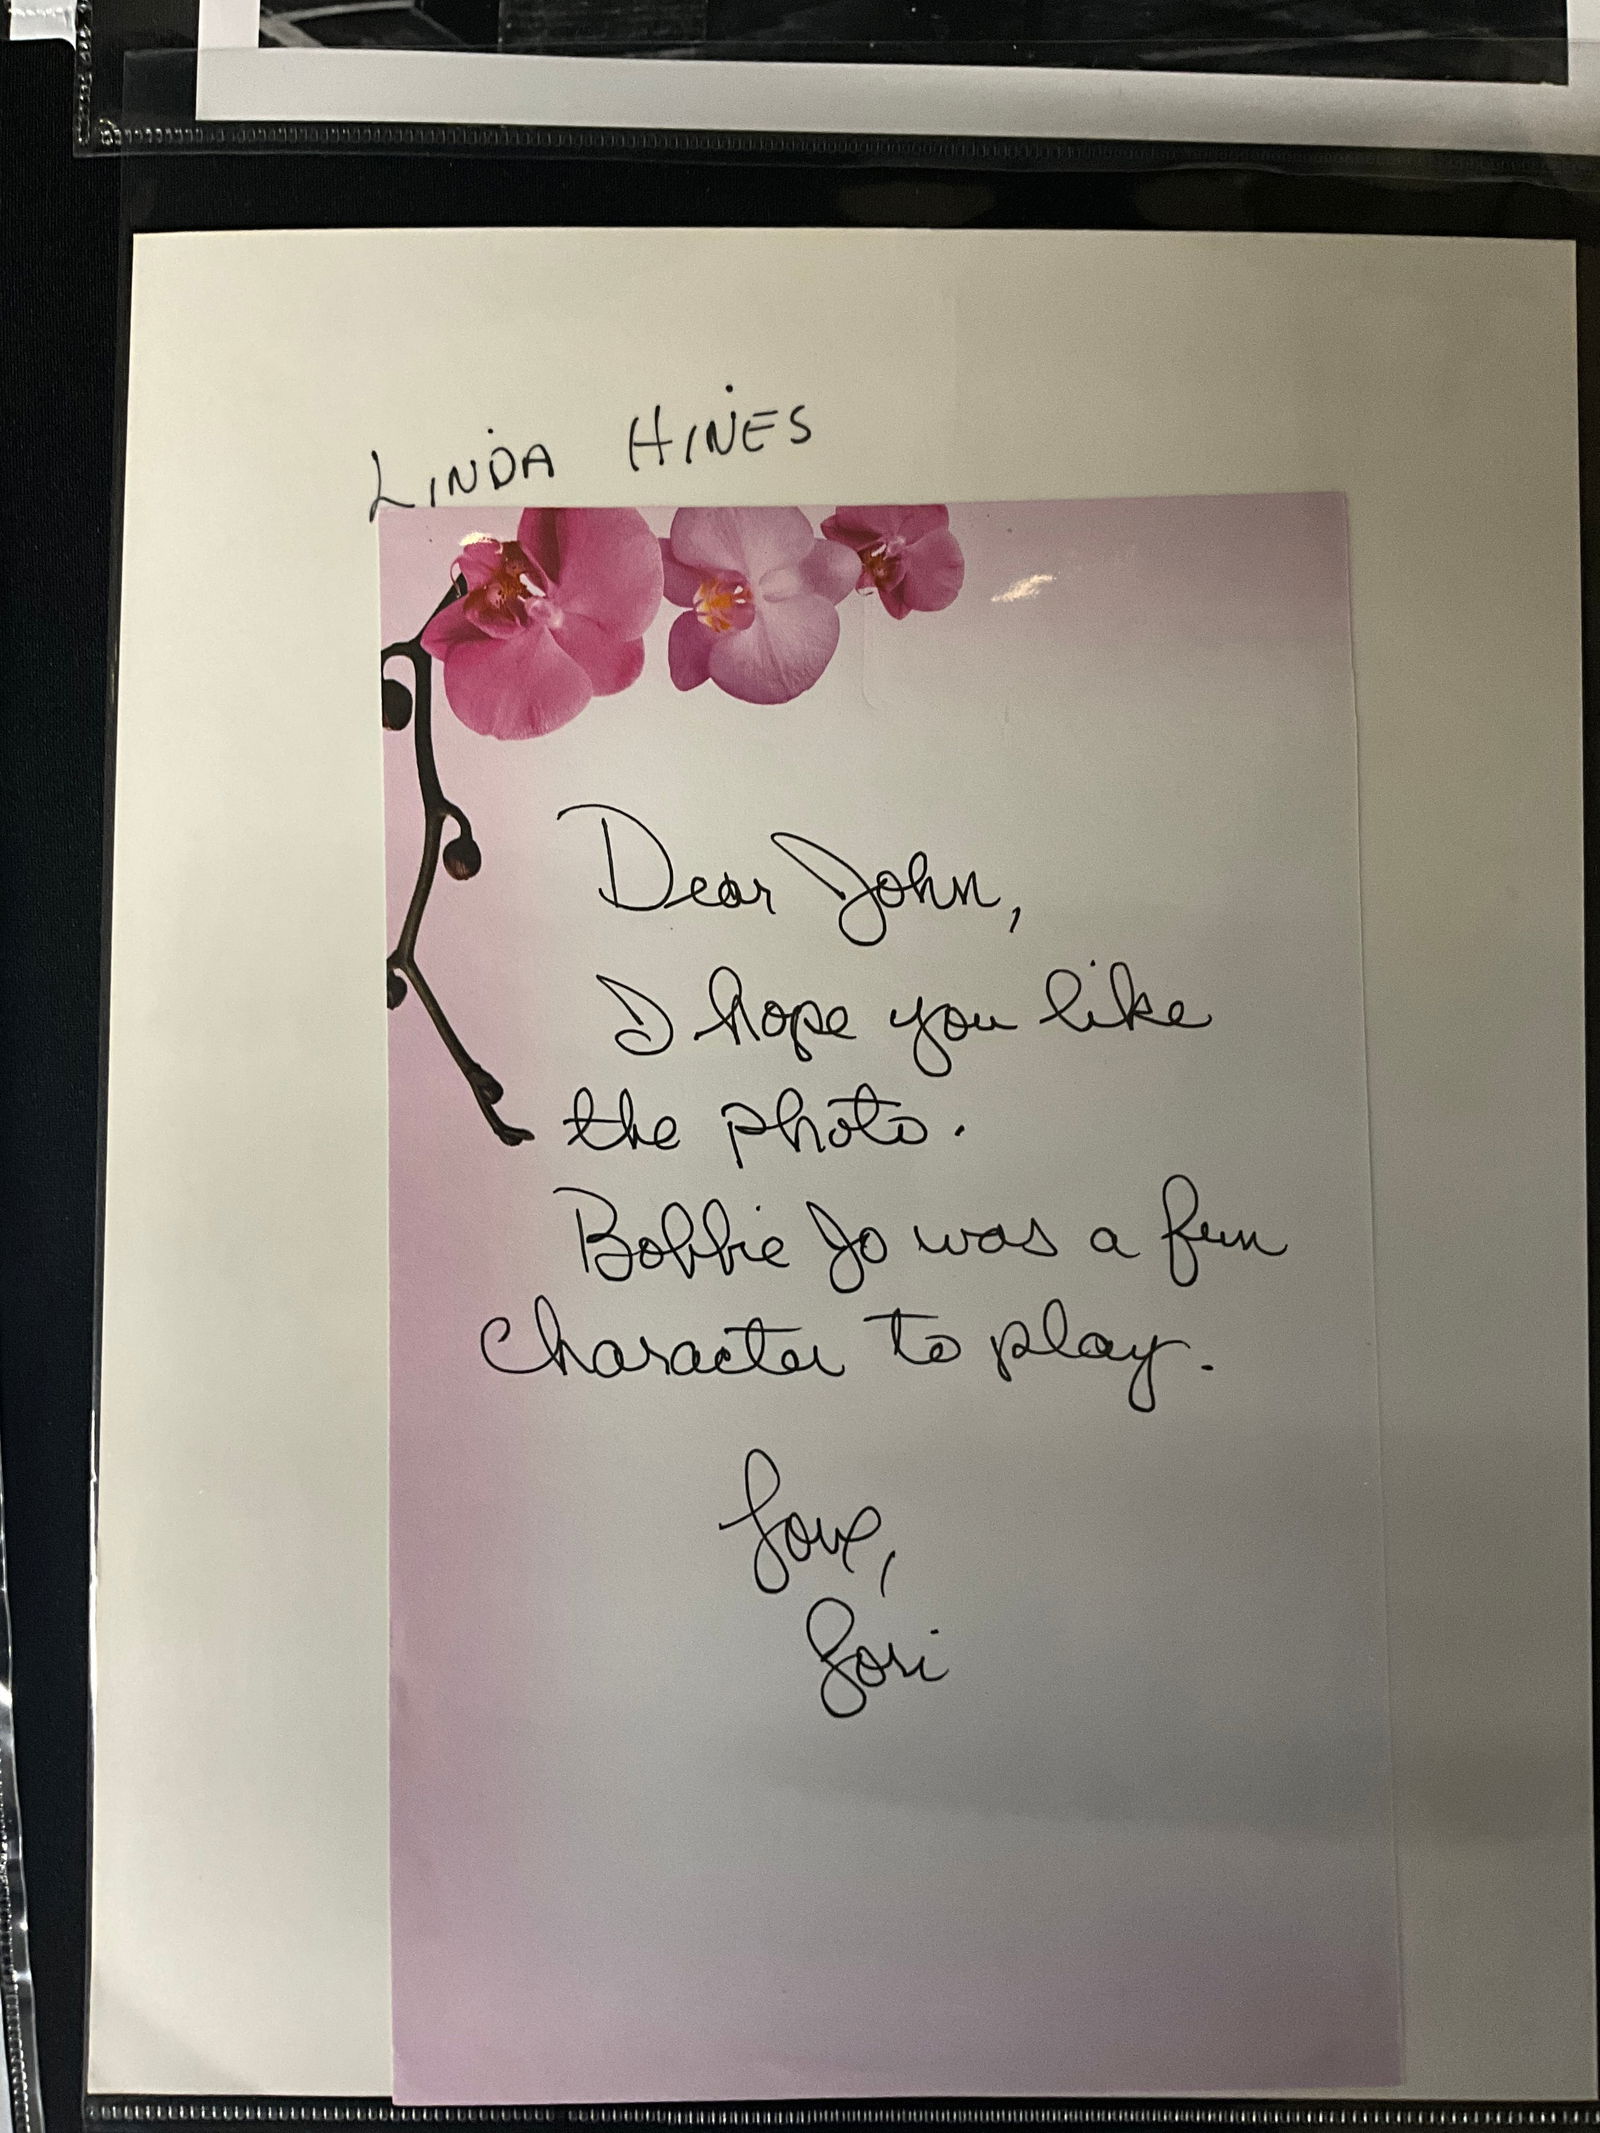 LINDA HINES
Dear John,
I hope you like
the photo.
Bobbie Jo was a fun
character to play.
Love,
Lori